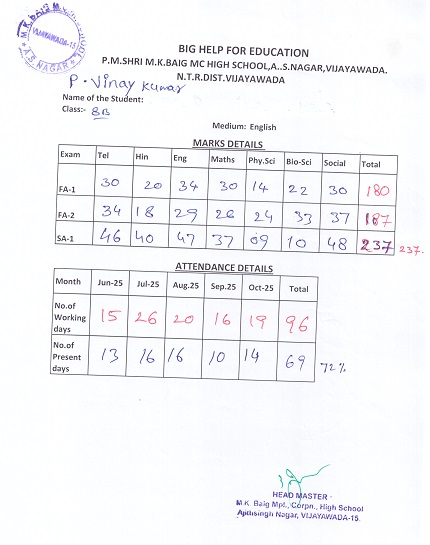 M.K. BAIG M
VIJAYAWADA-15
A.S. NAGAR
BIG HELP FOR EDUCATION
P.M.SHRI M.K.BAIG MC HIGH SCHOOL,A..S.NAGAR,VIJAYAWADA.
N.T.R.DIST.VIJAYAWADA
P. Vinay Kumar
Name of the Student:
Class:- 8B
Medium: English
MARKS DETAILS
Exam Tel Hin Eng Maths Phy.Sci Bio-Sci Social Total
FA-1 30 20 34 30 14 22 30 180
FA-2 34 18 29 26 24 33 37 187
SA-1 46 40 47 37 09 10 48 237 237.
ATTENDANCE DETAILS
Month Jun-25 Jul-25 Aug.25 Sep.25 Oct-25 Total
No.of
Working
days 15 26 20 16 19 96
No.of
Present
days 13 16 16 10 14 69 72%
HEAD MASTER
M.K. Baig Mpl., Corpn., High School
Ajithsingh Nagar, VIJAYAWADA-15.